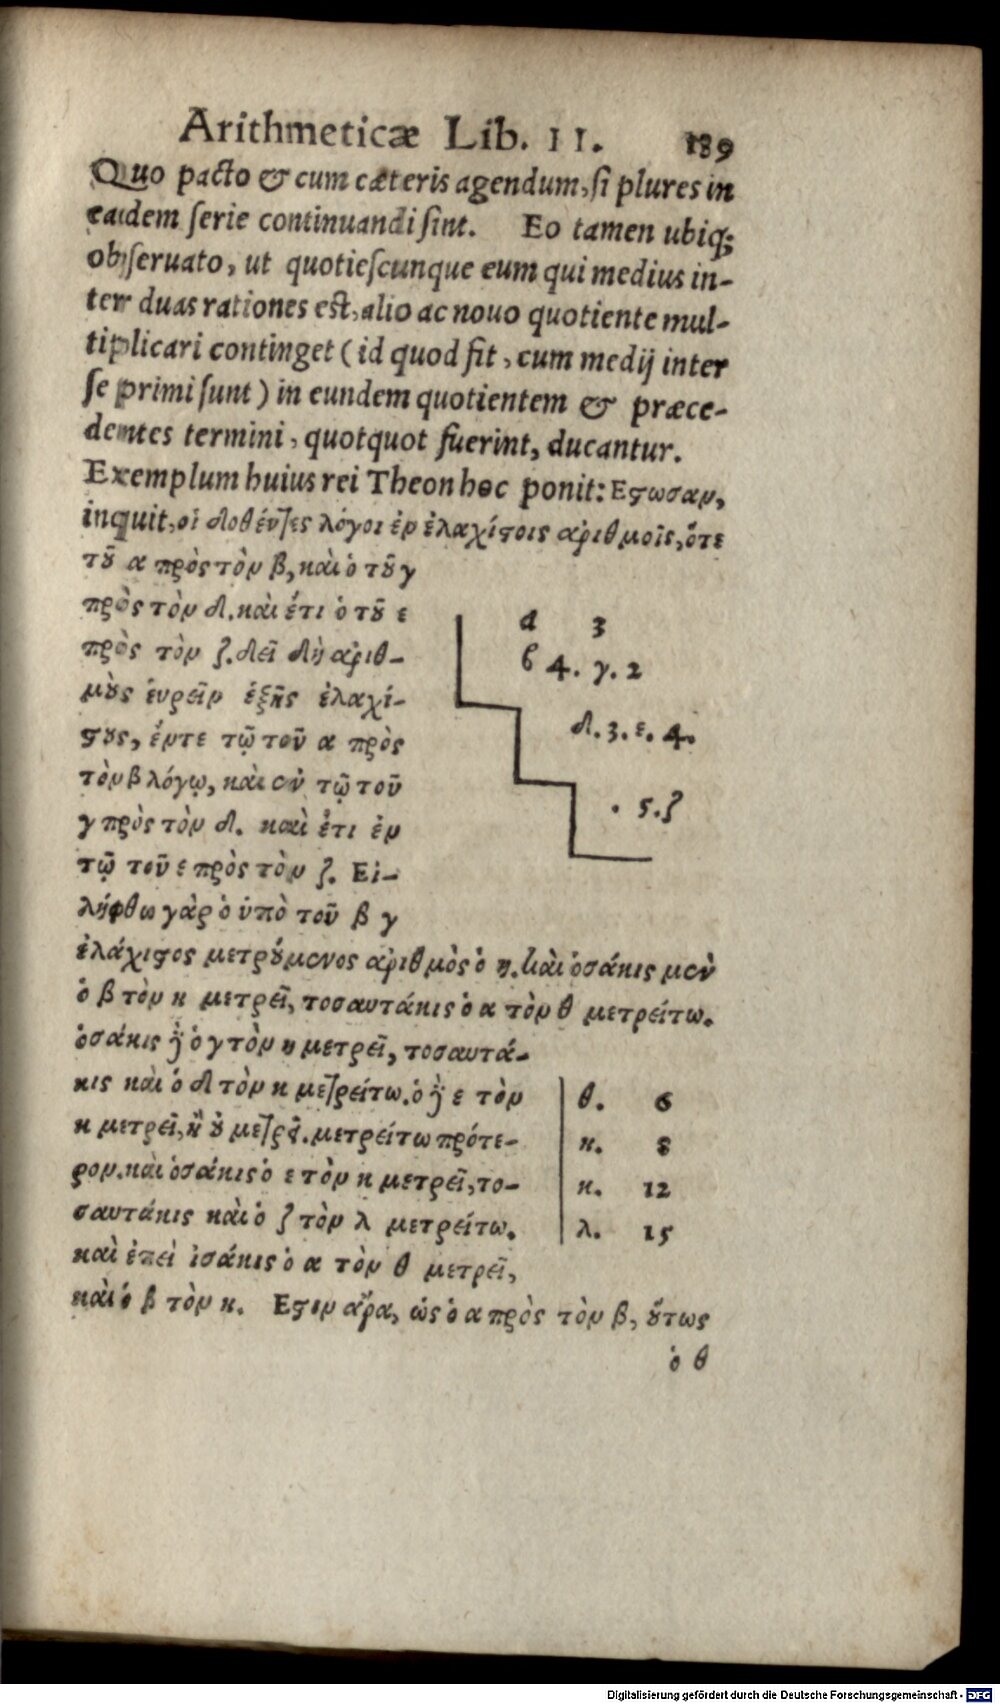 Arithmeticæ Lib. II. 189
Quo pacto & cum cæteris agendum, si plures in
eadem serie continuandi sint. Eo tamen ubiq;
obseruato, ut quotiescunque eum qui medius in-
ter duas rationes est, alio ac nouo quotiente mul-
tiplicari continget (id quod fit, cum medij inter
se primi sunt) in eundem quotientem & præce-
dentes termini, quotquot fuerint, ducantur.
Exemplum huius rei Theon hoc ponit: Εϛωσαν,
inquit, οἱ δοθέντες λόγοι ἐν ἐλαχίϛοις ἀριθμοῖς, ὅτε
τȣ͂ α πρὸς τὸν β, καὶ ὁ τȣ͂ γ
πρὸς τὸν δ. καὶ ἔτι ὁ τȣ͂ ε
πρὸς τὸν ζ. δεῖ δὴ ἀριθ-
μὸυς ἑυρεῖν ἑξῆς ἐλαχί-
ϛους, ἔντε τῷ τοῦ α πρὸς
τὸν β λόγῳ, καὶ ἐν τῷ τοῦ
γ πρὸς τὸν δ. καὶ ἔτι ἐν
τῷ τοῦ ε πρὸς τὸν ζ. Εἰ-
λήφθω γὰρ ὁ ὑπὸ τοῦ β γ
ἐλάχιϛος μετρȣ́μενος ἀριθμὸς ὁ η. καὶ ὁσάκις μὲν
ὁ β τὸν κ μετρεῖ, τοσαυτάκις ὁ α τὸν θ μετρείτω.
ὁσάκις ὁ γ τὸν η μετρεῖ, τοσαυτά-
κις καὶ ὁ δ τὸν κ μετρείτω. ὁ ε τὸν
κ μετρεῖ, ἢ ȣ̓ μετρεῖ. μετρείτω πρότε-
ρον. καὶ ὁσάκις ὁ ε τὸν κ μετρεῖ, το-
σαυτάκις καὶ ὁ ζ τὸν λ μετρείτω.
καὶ ἐπεὶ ἰσάκις ὁ α τὸν θ μετρεῖ,
καὶ ὁ β τὸν κ. Εϛιν ἄρα, ὡς ὁ α πρὸς τὸν β, ȣ̔́τως
ὁ θ
α 3
β 4. γ. 2
δ. 3. ε. 4.
. 5. ζ
θ. 6
κ. 8
κ. 12
λ. 15
Digitalisierung gefördert durch die Deutsche Forschungsgemeinschaft - DFG